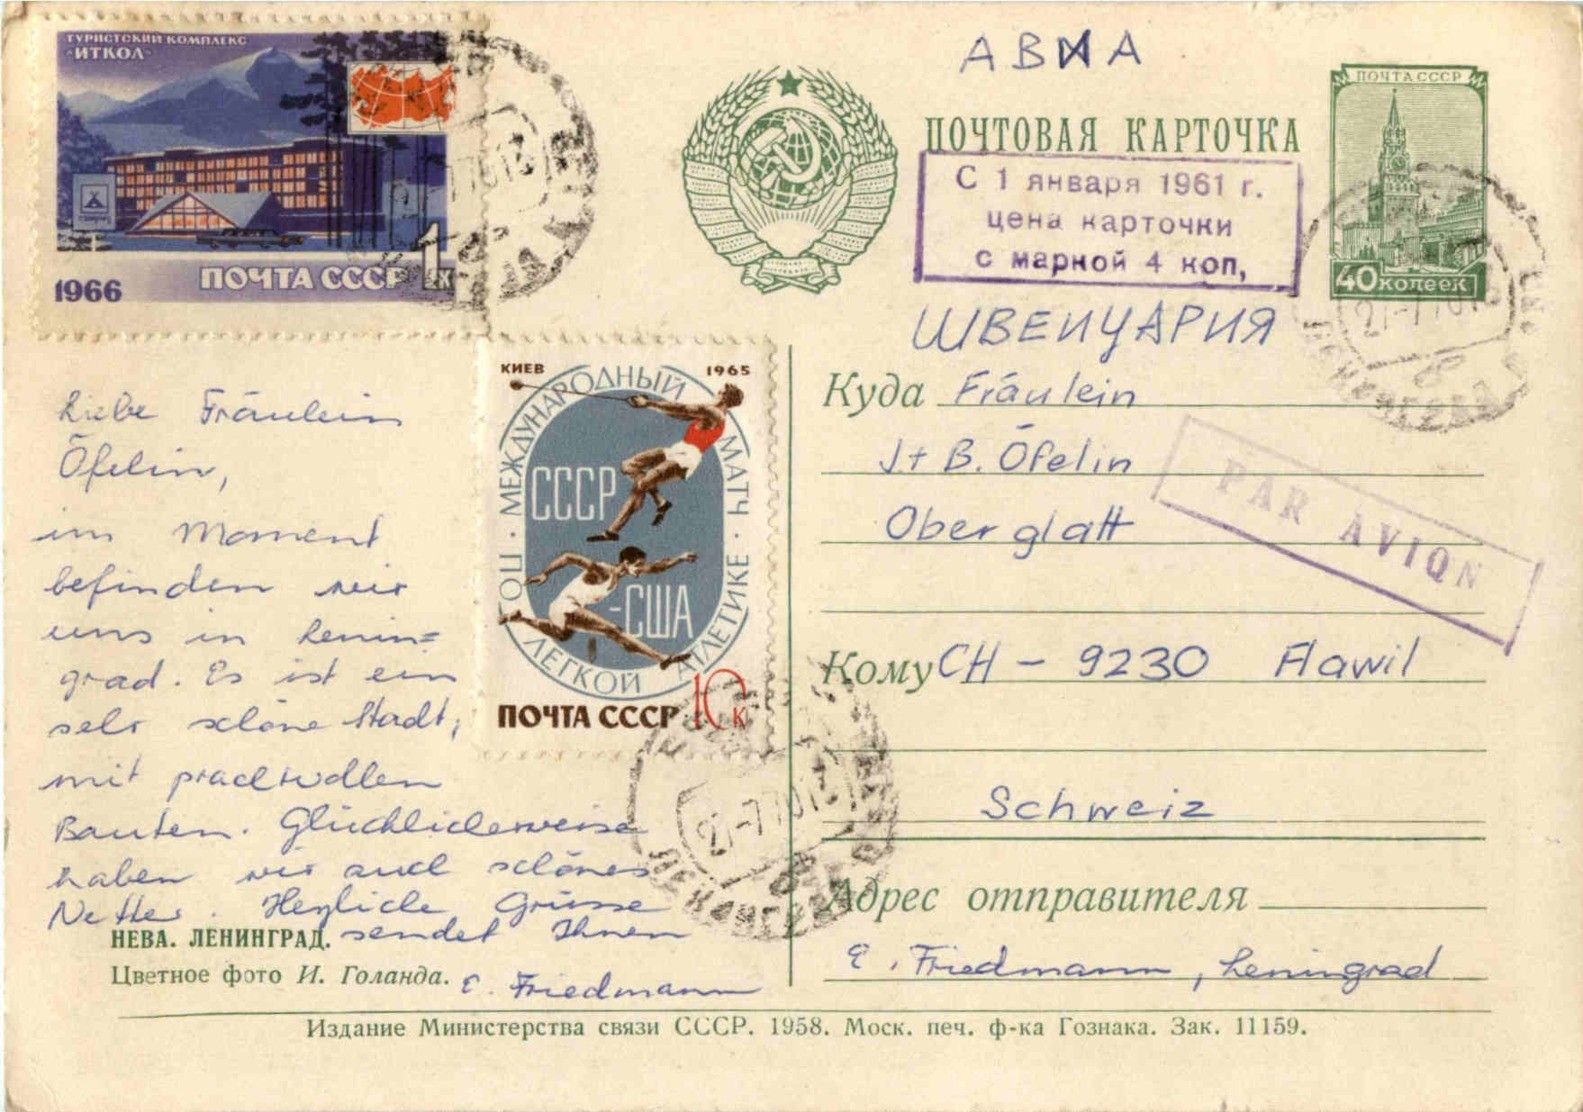 ТУРИСТСКИЙ КОМПЛЕКС
"ИТКОЛ"
1966
ПОЧТА СССР 1к
АВИА
ПОЧТОВАЯ КАРТОЧКА
С 1 января 1961 г.
цена карточки
с маркой 4 коп,
ПОЧТА СССР
40 копеек
КИЕВ 1965
МЕЖДУНАРОДНЫЙ МАТЧ ПО ЛЕГКОЙ АТЛЕТИКЕ
СССР
-США
ПОЧТА СССР 10 к
Liebe Fräulein
Öfelin,
im Moment
befinden wir
uns in Lenin=
grad. Es ist ein
sehr schöne Stadt,
mit prachtvollen
Bauten. Glücklicherweise
haben wir auch schönes
Wetter. Herzliche Grüsse
sendet Ihnen
E. Friedmann
НЕВА. ЛЕНИНГРАД.
Цветное фото И. Голанда.
ШВЕИЦАРИЯ
Куда Fräulein
J+B. Öfelin
Oberglatt
PAR AVION
Кому CH - 9230 Flawil
Schweiz
Адрес отправителя
E. Friedmann, Leningrad
Издание Министерства связи СССР. 1958. Моск. печ. ф-ка Гознака. Зак. 11159.